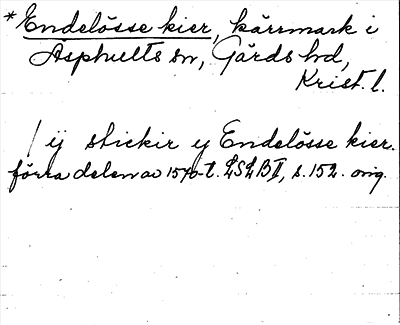 *Endelösse kier, kärrmark i
Asphults sn, Gärds hd,
Krist. l.
/ ij stickir ij Endelösse kier.
förra delen av 1570-t. LSLB II, s. 152. orig.